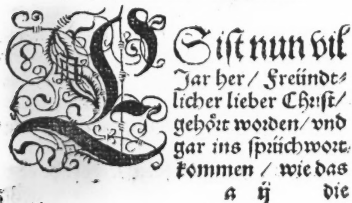 ES ist nun vil
Jar her / Freündt-
licher lieber Christ /
gehört worden / vnd
gar ins sprüchwort
kommen / wie das
a ij die